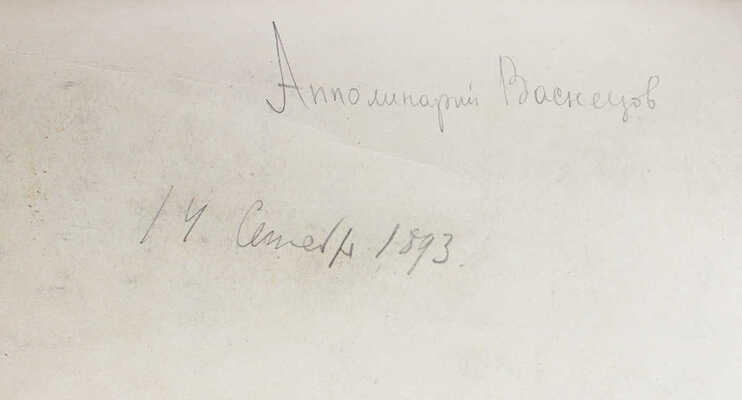 Апполинарий Васнецов
14 Сентебр 1893.